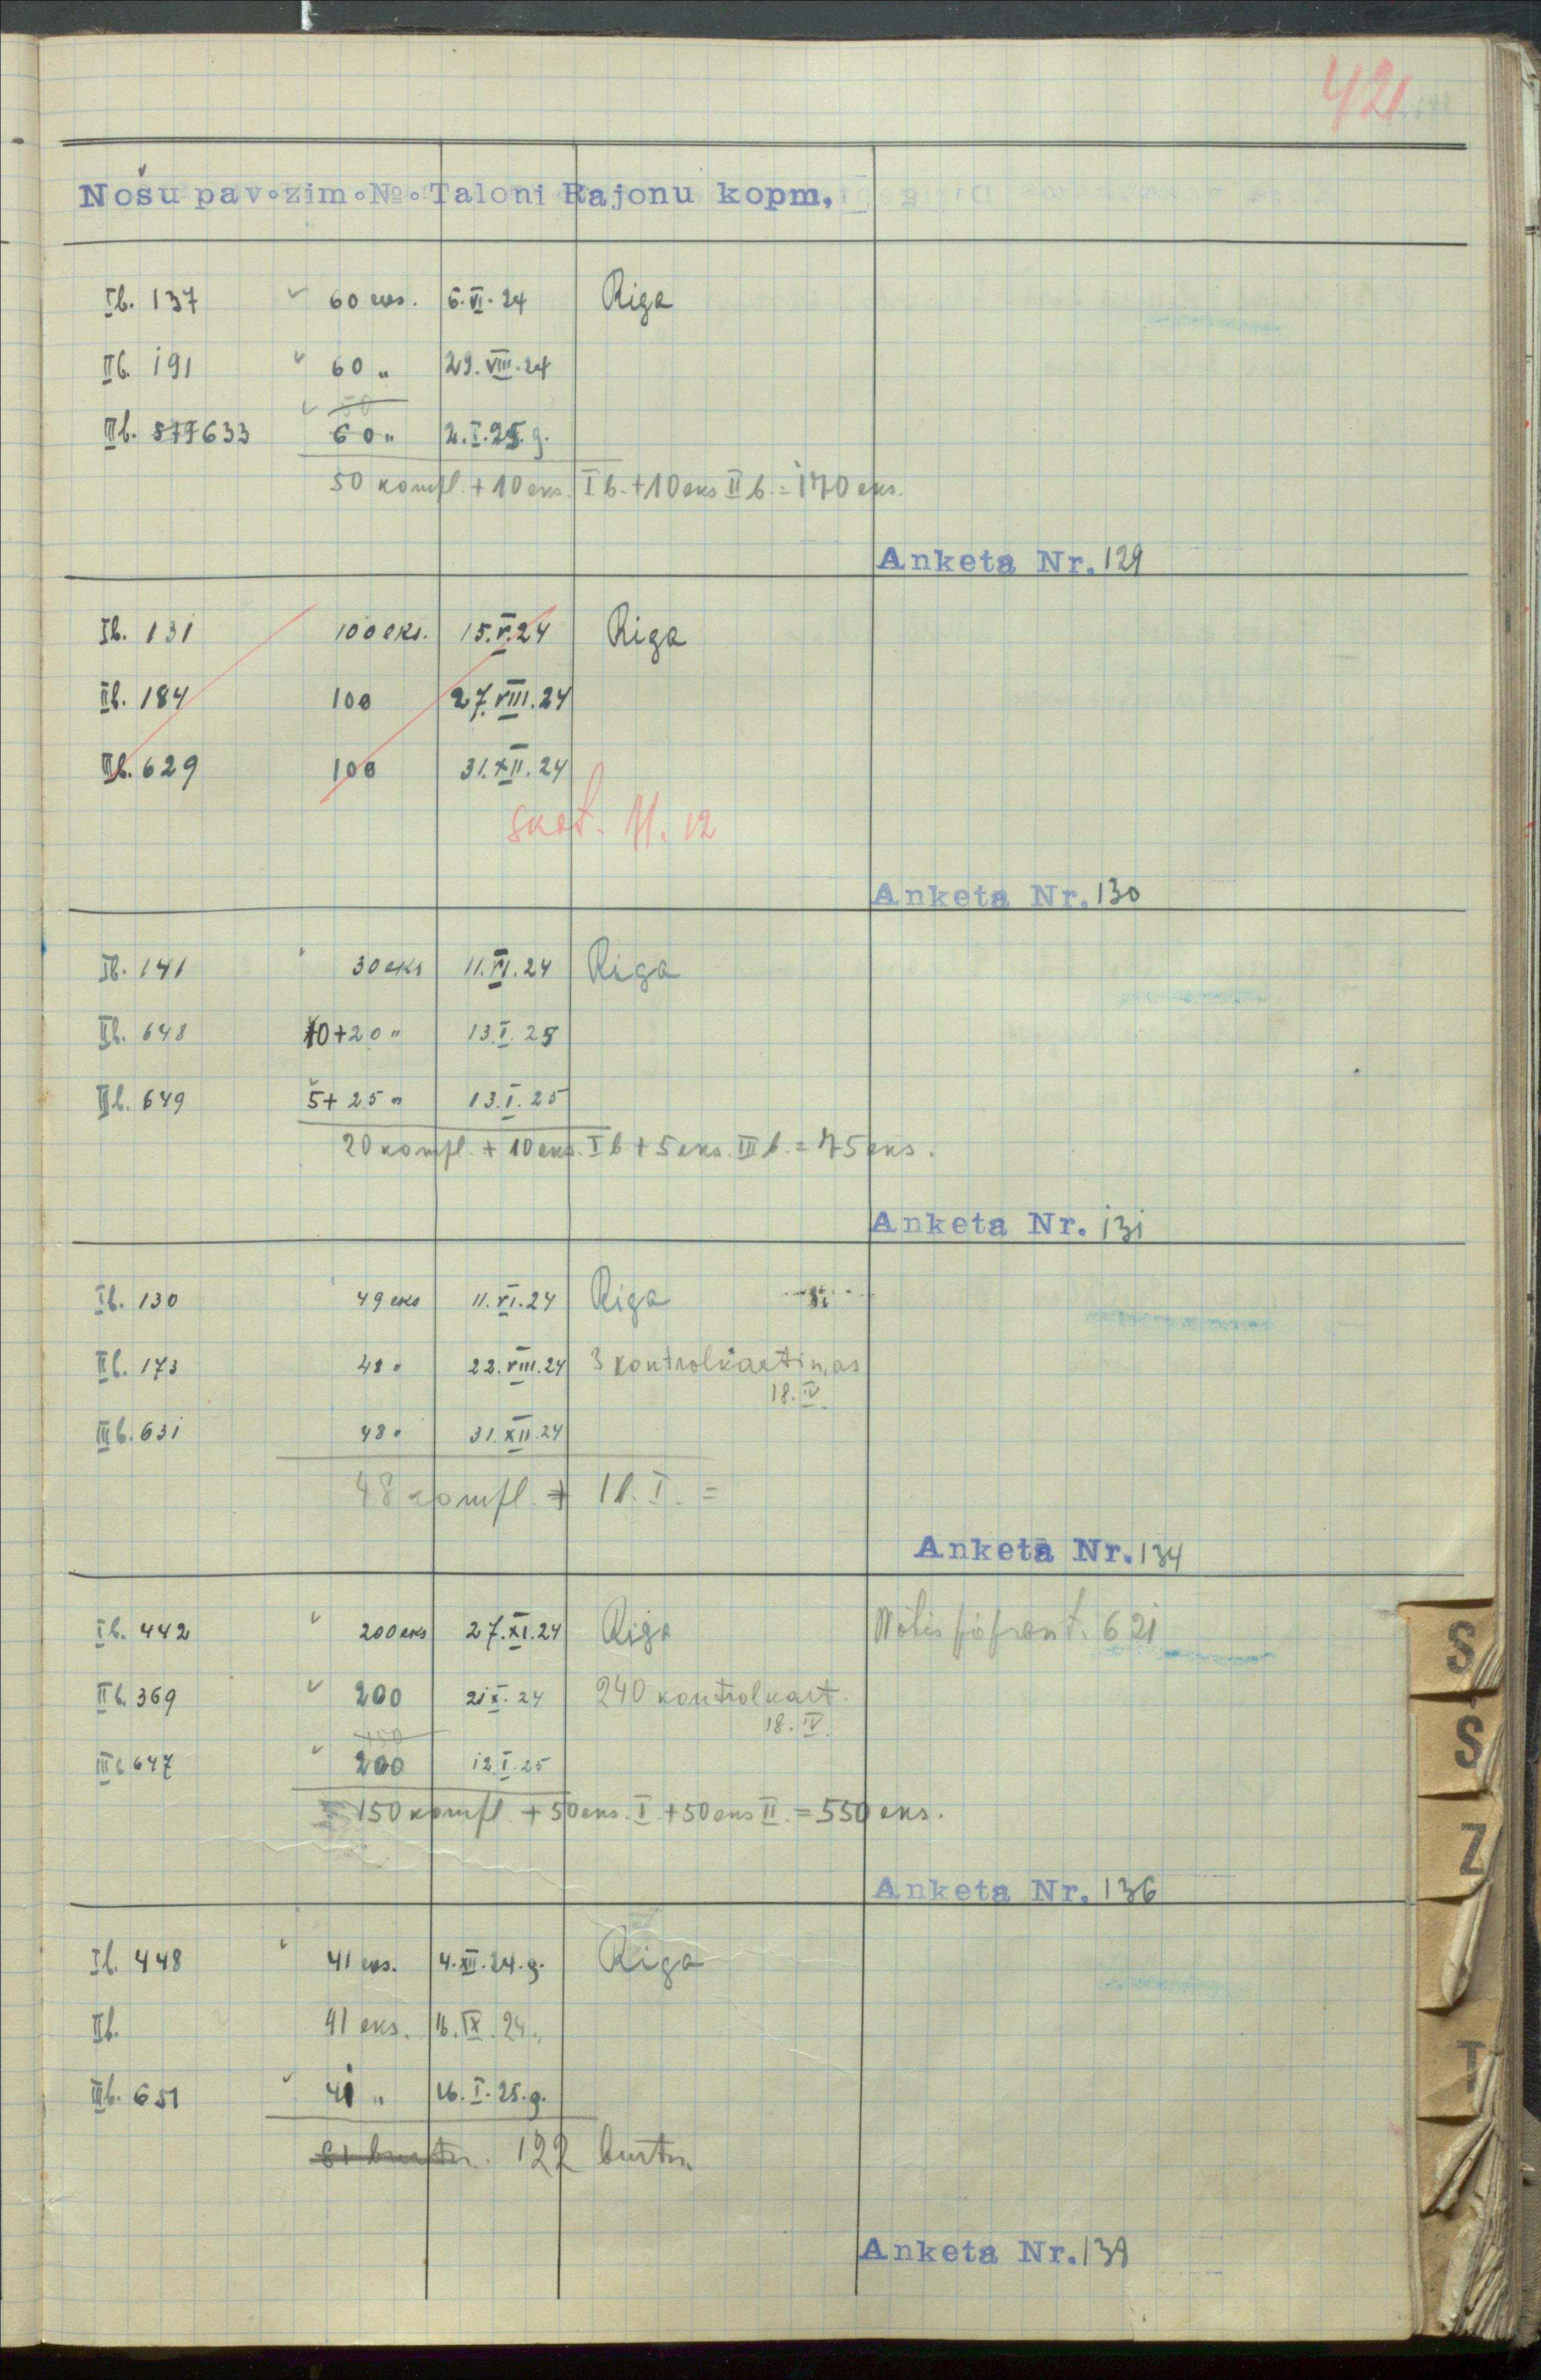 421
Nošu pav. zim. № Taloni Rajonu kopm,
Ib. 137 60 eks. 6.VI.24 Riga
IIb. 191 60 " 29.VIII.24
50
IIIb. 577633 60 " 2.I.25.g.
50 kompl. + 10 eks. I b. + 10 eks II b. = 170 eks.
Anketa Nr. 129
Ib. 131 100 eks. 15.V.24 Riga
IIb. 184 100 27.VIII.24
IIIb. 629 100 31.XII.24
skat. 11. 12
Anketa Nr. 130
Ib. 141 30 eks 11.VI.24 Riga
IIb. 648 10+20 " 13.I.25
IIIb. 649 5+25 " 13.I.25
20 kompl. + 10 eks. I b + 5 eks. III b. = 75 eks.
Anketa Nr. 131
Ib. 130 49 eks 11.VI.24 Riga
IIb. 173 48 " 22.VIII.24 3 kontrolkartiņas
18.IV.
IIIb. 631 48 " 31.XII.24
48 kompl. + 1 b. I. =
Anketa Nr. 134
Ib. 442 200 eks 27.XI.24 Riga 621
IIb. 369 200 21 X. 24 240 kontrolkart.
18.IV.
150
IIIb 647 200 12.I.25
150 kompl + 50 eks. I. + 50 eks II. = 550 eks.
Anketa Nr. 136
Ib. 448 41 eks. 4.XII.24.g. Riga
IIb. 41 eks. 16.IX.24.,
IIIb. 651 41 " 16.I.25.g.
81 burtn. 122 burtn.
Anketa Nr. 139
S
Š
Z
T